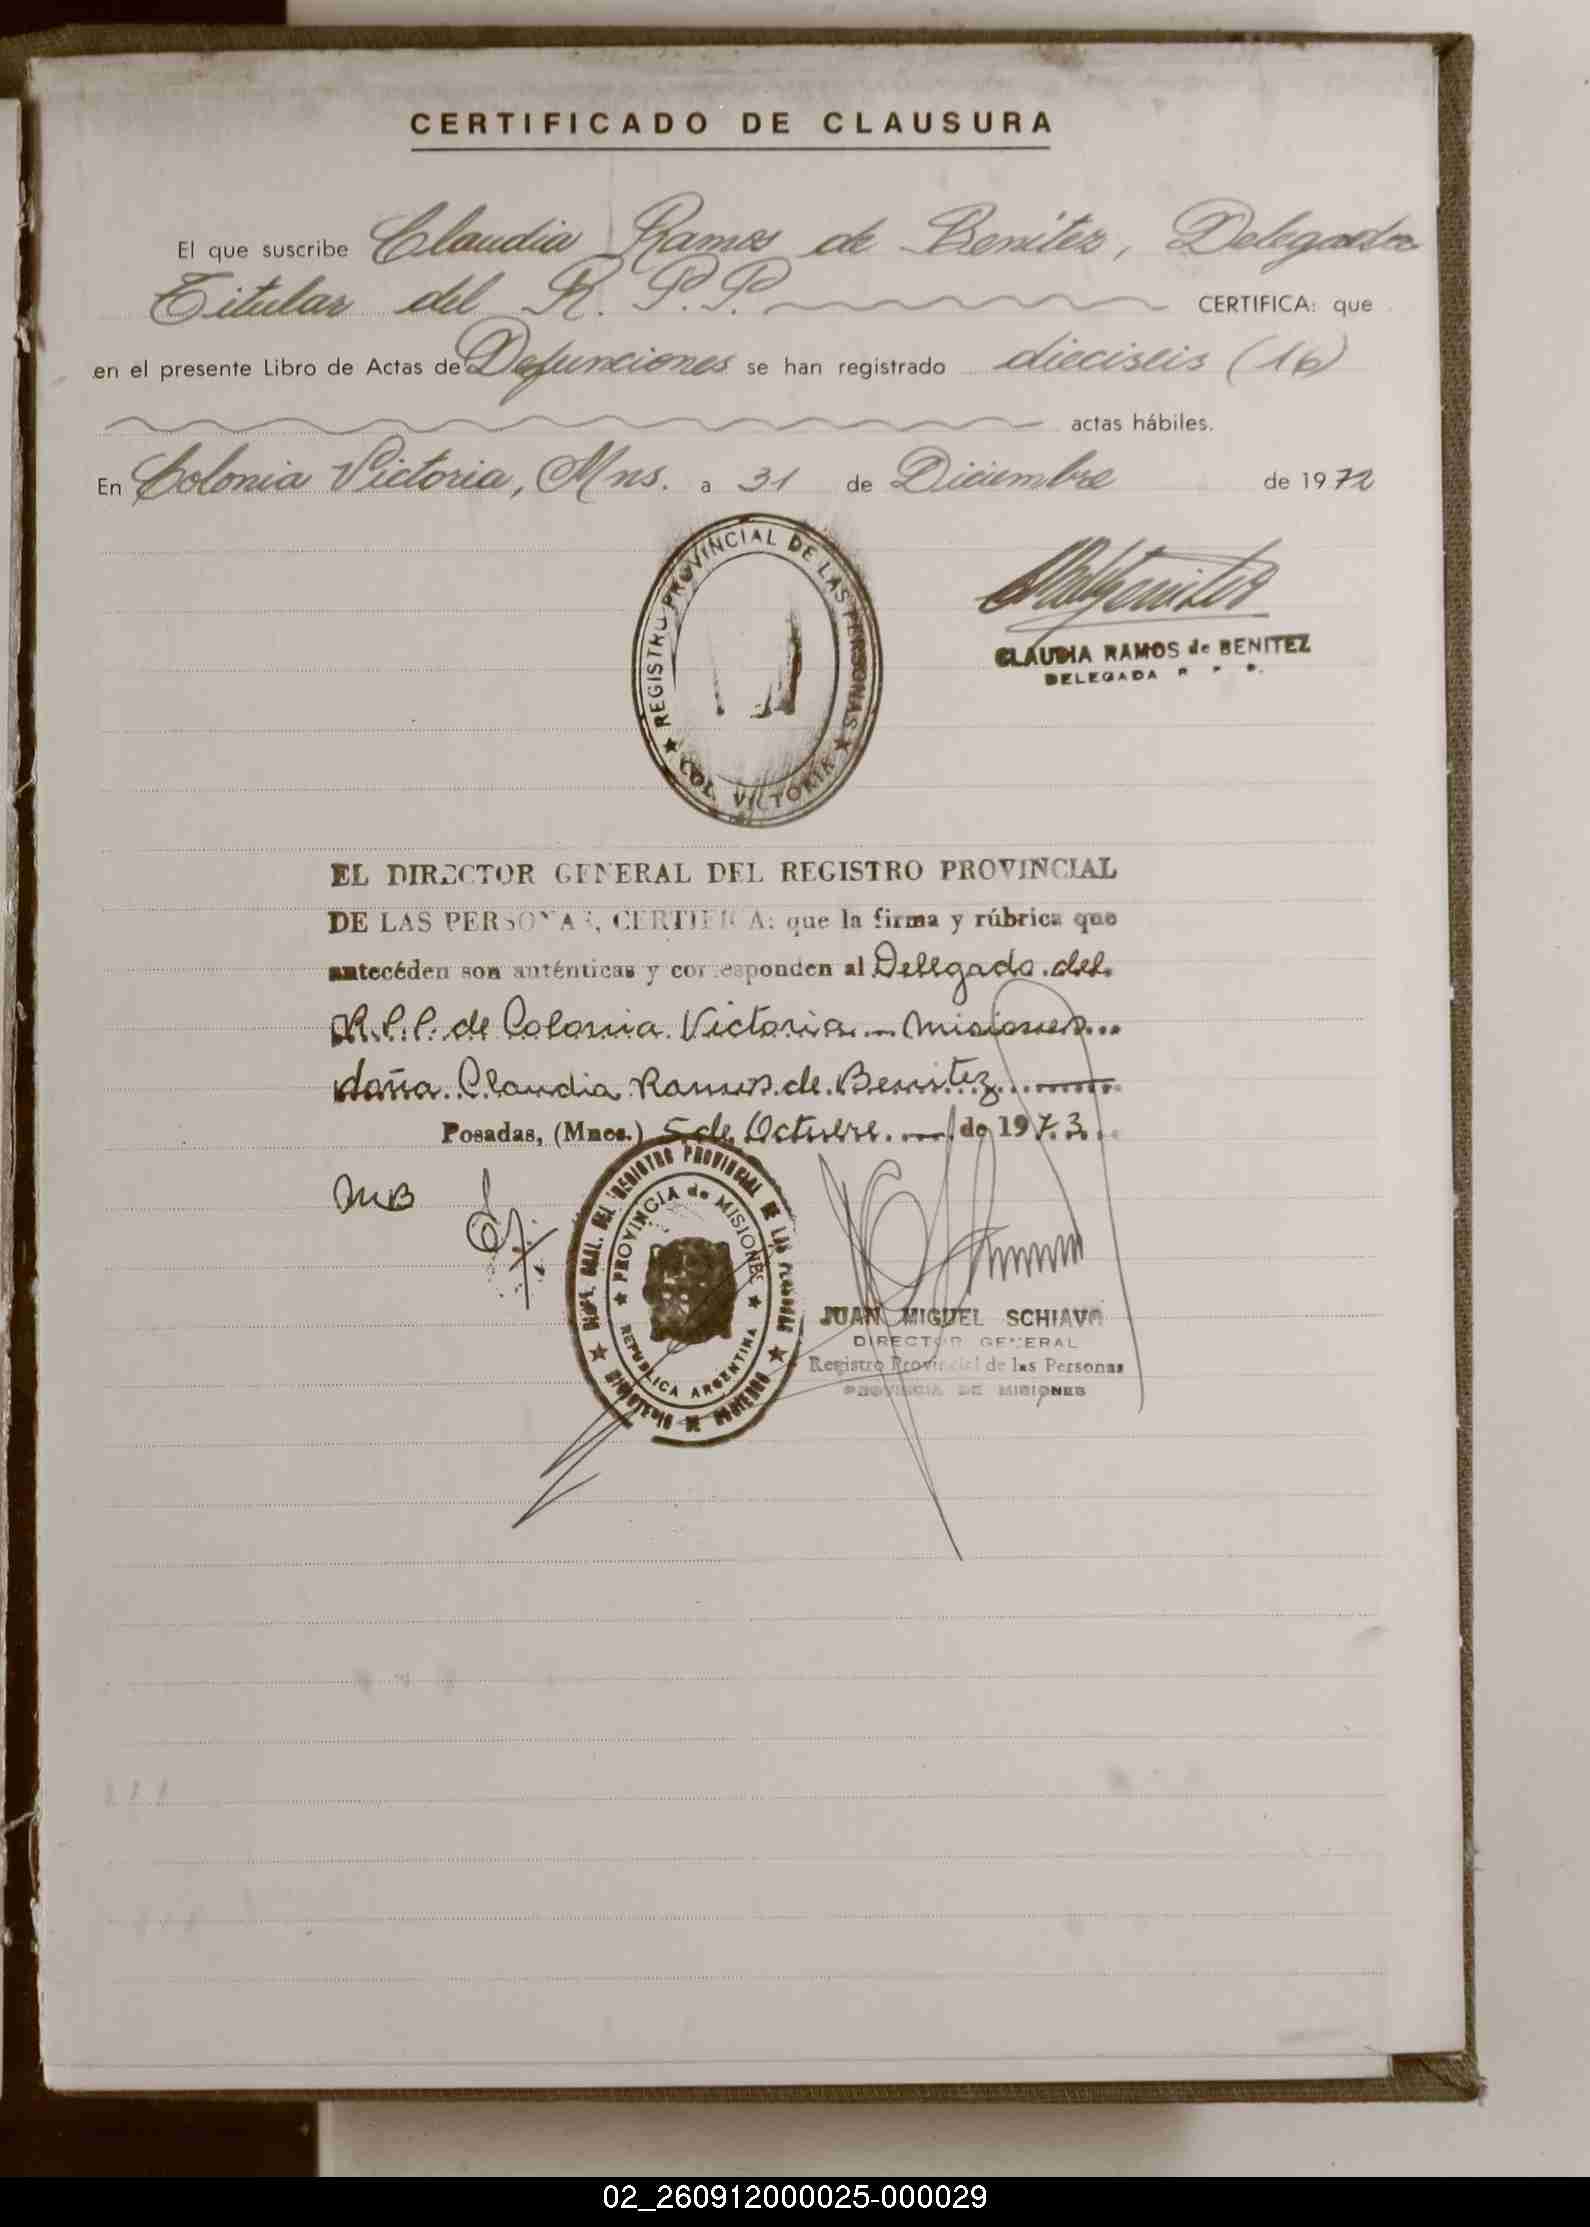 CERTIFICADO DE CLAUSURA
El que suscribe Claudia Ramos de Benitez, Delegada
Titular del R. P. P. CERTIFICA: que
en el presente Libro de Actas de Defunciones se han registrado dieciseis (16)
actas hábiles.
En Colonia Victoria, Mns. a 31 de Diciembre de 1972
REGISTRO PROVINCIAL DE LAS PERSONAS
COL. VICTORIA
CLAUDIA RAMOS de BENITEZ
DELEGADA R P P.
EL DIRECTOR GENERAL DEL REGISTRO PROVINCIAL
DE LAS PERSONAS, CERTIFICA: que la firma y rúbrica que
antecéden son auténticas y corresponden al Delegado del
R.P.P. de Colonia Victoria - Misiones
doña Claudia Ramos de Benitez
Posadas, (Mnes.) 5 de Octubre de 1973
MB
DIRE. GRAL. DEL REGISTRO PROVINCIAL DE LAS PERSONAS
PROVINCIA de MISIONES
REPUBLICA ARGENTINA
MINISTERIO DE GOBIERNO
JUAN MIGUEL SCHIAVO
DIRECTOR GENERAL
Registro Provincial de las Personas
PROVINCIA DE MISIONES
02_260912000025-000029